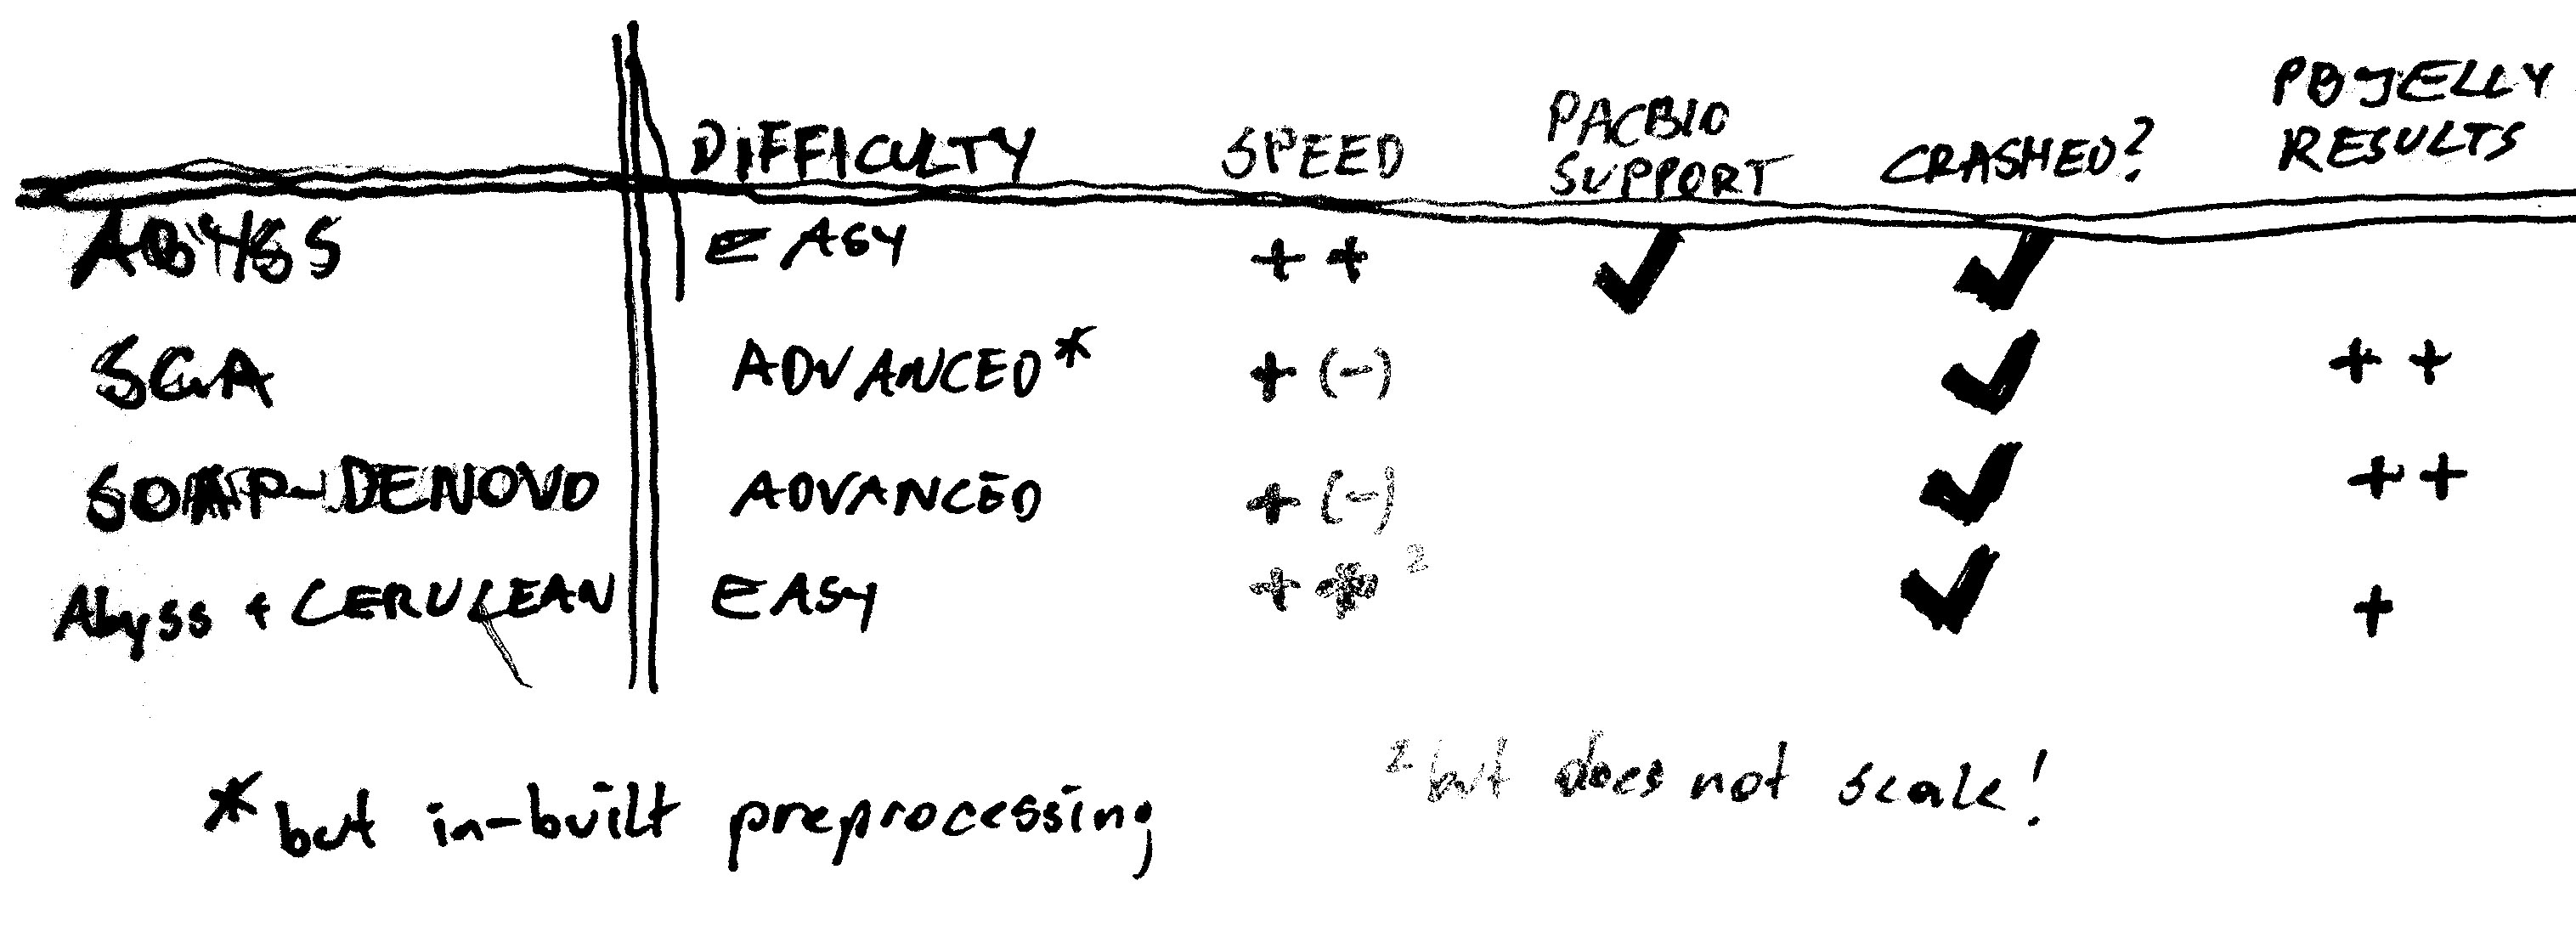 DIFFICULTY SPEED PACBIO SUPPORT CRASHED? PBJELLY RESULTS
ABYSS EASY ++ ✓ ✓
SGA ADVANCED* +(-) ✓ ++
SOAP-DENOVO ADVANCED +(-) ✓ ++
Abyss + CERULEAN EASY ++² ✓ +
*but in-built preprocessing
²but does not scale!